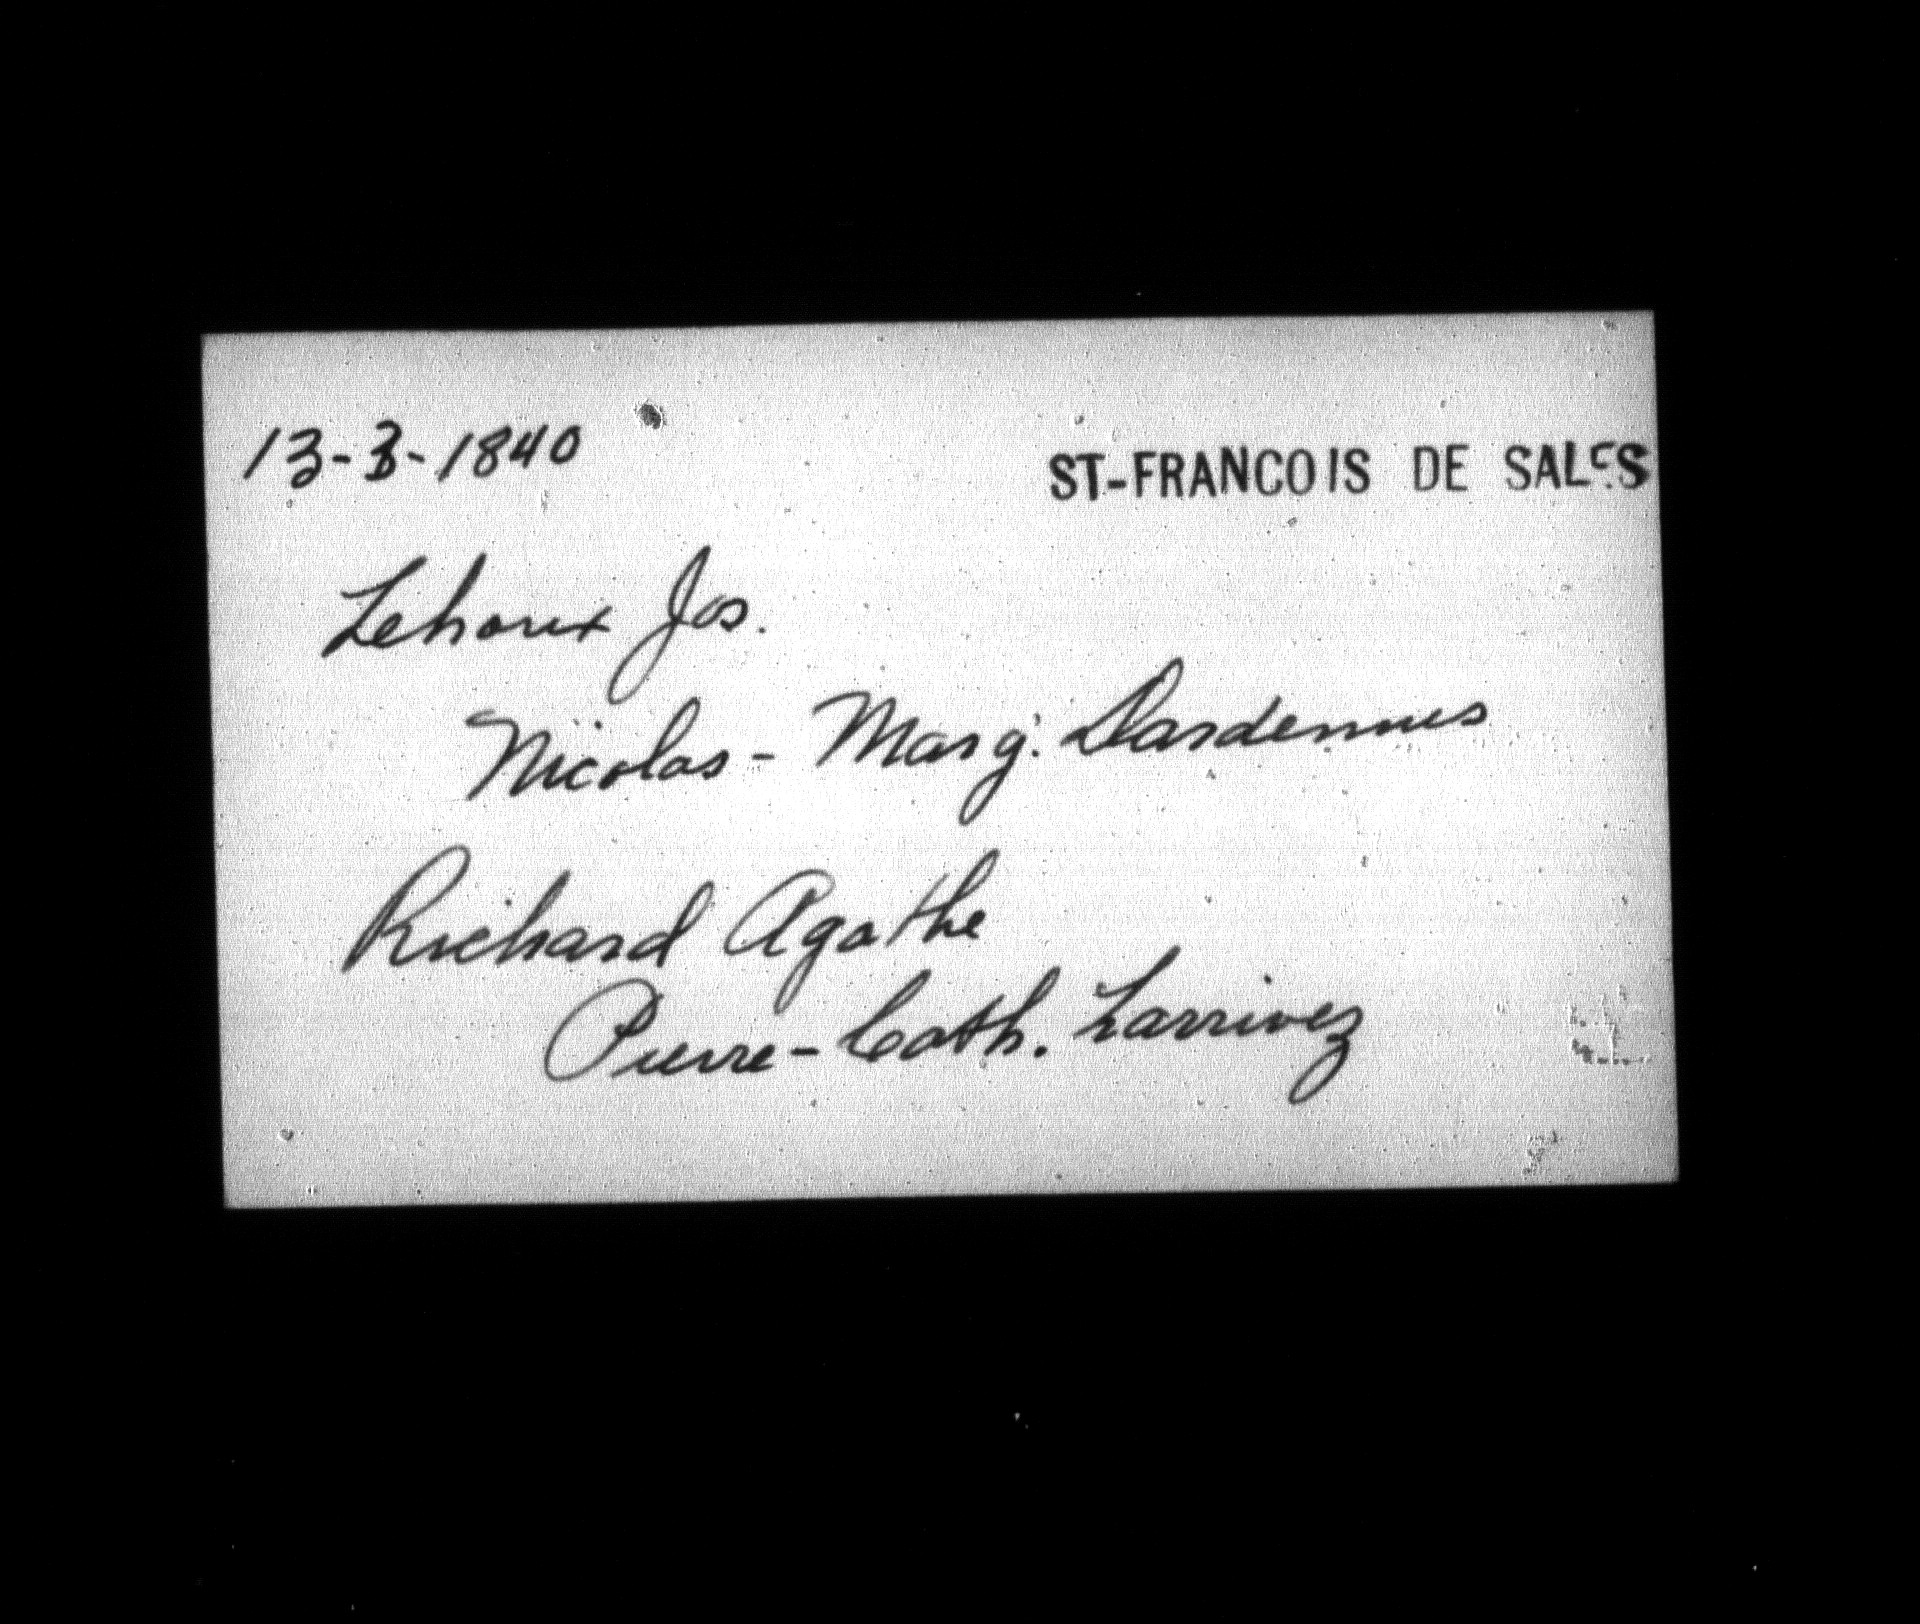 13-3-1840 ST-FRANCOIS DE SALES
Lehoux Jos.
Nicolas - Marg. Dardennes
Richard Agathe
Pierre - Cath. Larrivez